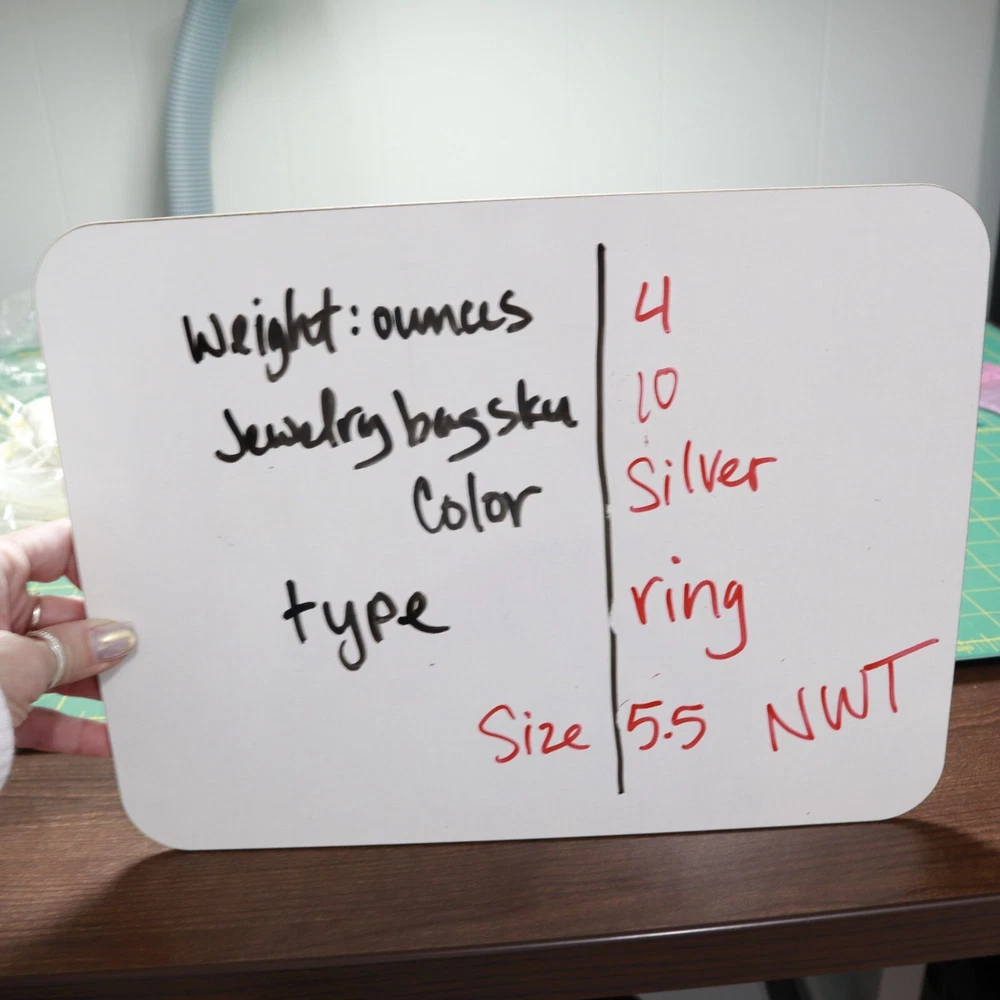 Weight: ounces 4
Jewelry bag sku 10
Color Silver
type ring
Size 5.5 NWT